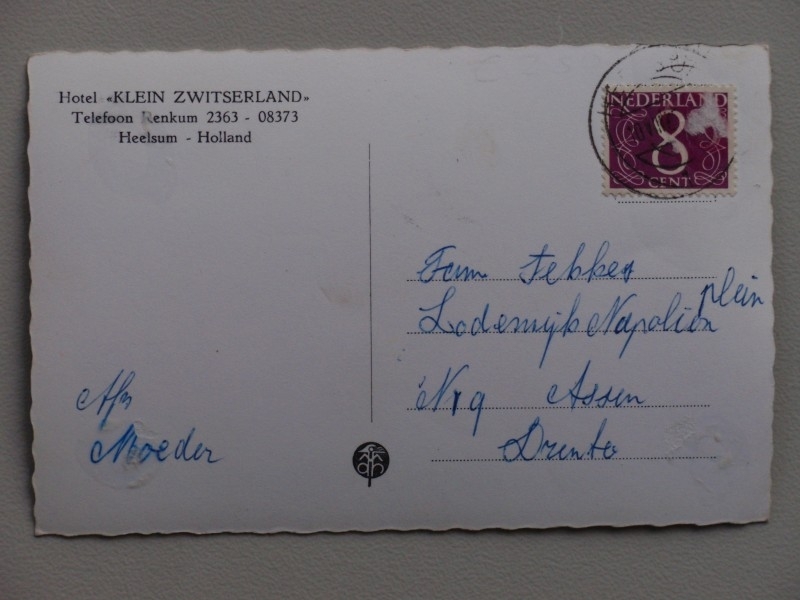 Hotel «KLEIN ZWITSERLAND»
Telefoon Renkum 2363 - 08373
Heelsum - Holland
NEDERLAND
8
CENT
Fam Fekkes
Lodewijk Napolion plein
Nr 9 Assen
Drente
Afz
Moeder